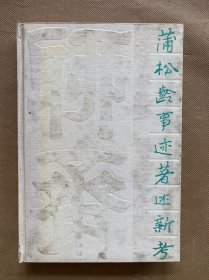 蒲松龄事迹著述新考
聊斋